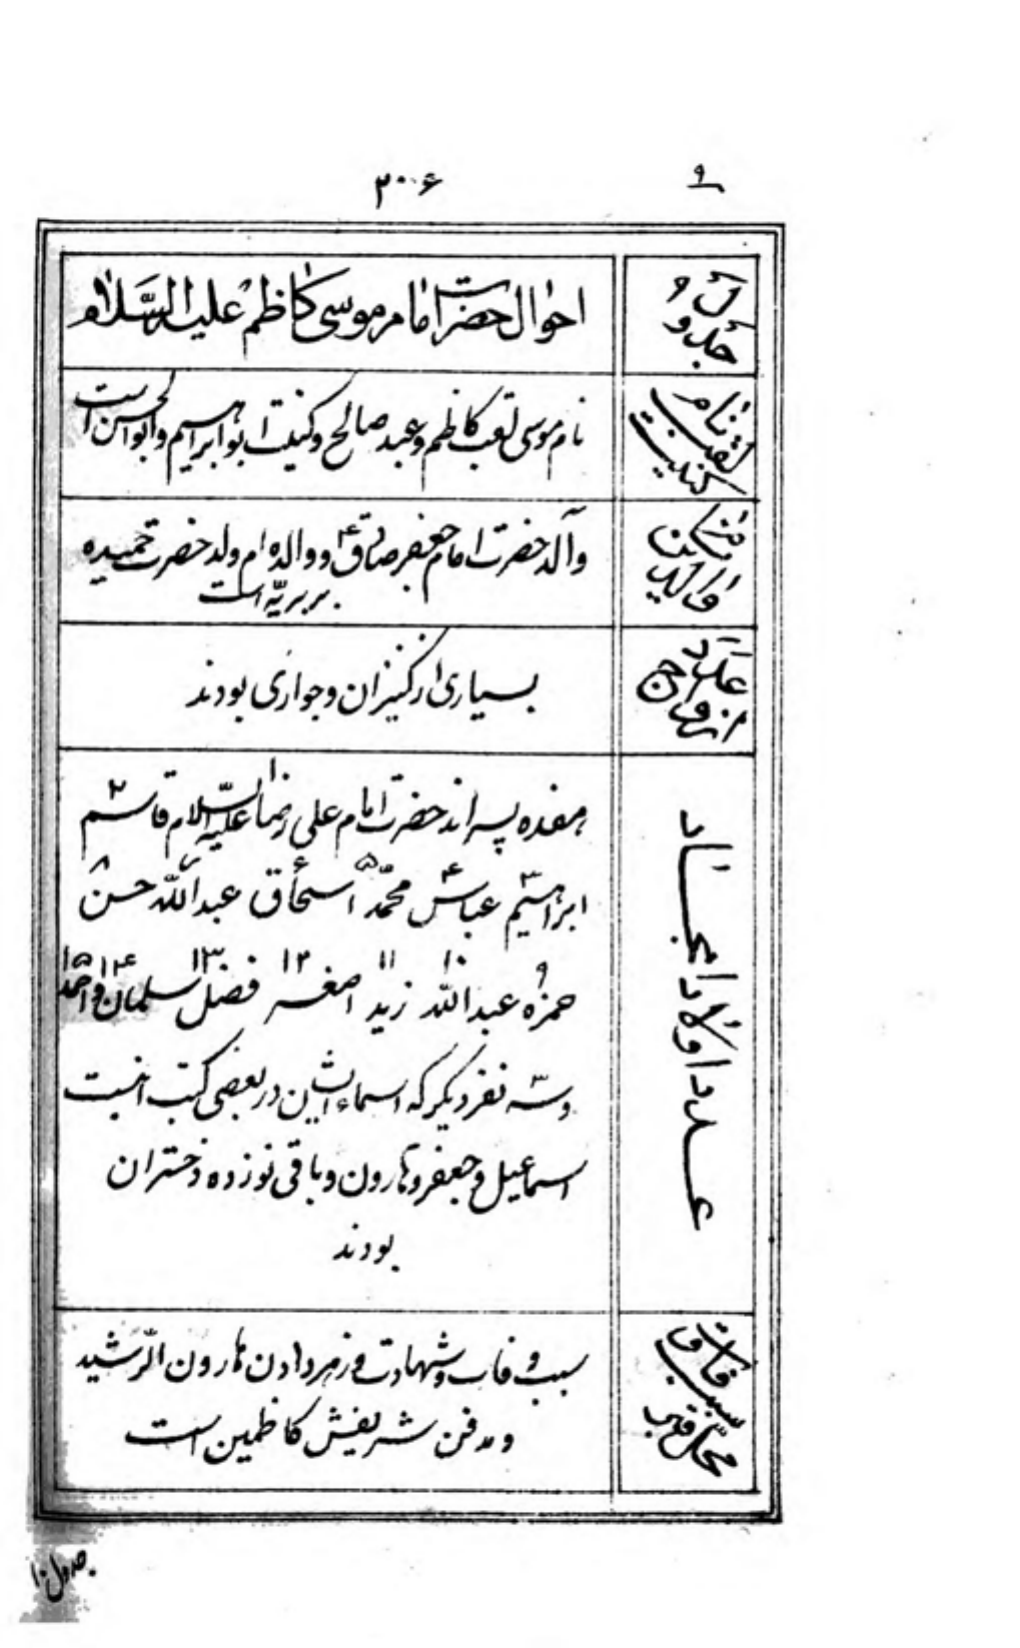 ۹
۲۰۶
جدول ۹
احوال حضرت امام موسی کاظم علیه السّلام
نام
لقب
کنیت
نام موسی لقب کاظم و عبد صالح و کنیت ابو ابراهیم و ابو الحسن است
والدین
والد حضرت امام جعفر صادق ع و والده ام ولد حضرت حمیده
بربریّه است
عدد
ازواج
بسیاری از کنیزان و جواری بودند
عدد اولاد امجاد
هفده پسراند حضرت امام علی رضا علیه السّلام ۱ قاسم ۲
ابراهیم ۳ عباس ۴ محمّد ۵ اسحاق ۶ عبدالله ۷ حسن ۸
حمزه ۹ عبدالله ۱۰ زید ۱۱ اصغر ۱۲ فضل ۱۳ سلمان ۱۴ و احمد ۱۵
و سه نفر دیگر که اسماء ایشان در بعضی کتب است
اسماعیل و جعفر و هارون و باقی نوزده دختران
بودند
سبب وفات و
محلّ قبر
سبب وفات و شهادت و زهر دادن هارون الرّشید
و مدفن شریفش کاظمین است
جدول ۱۰